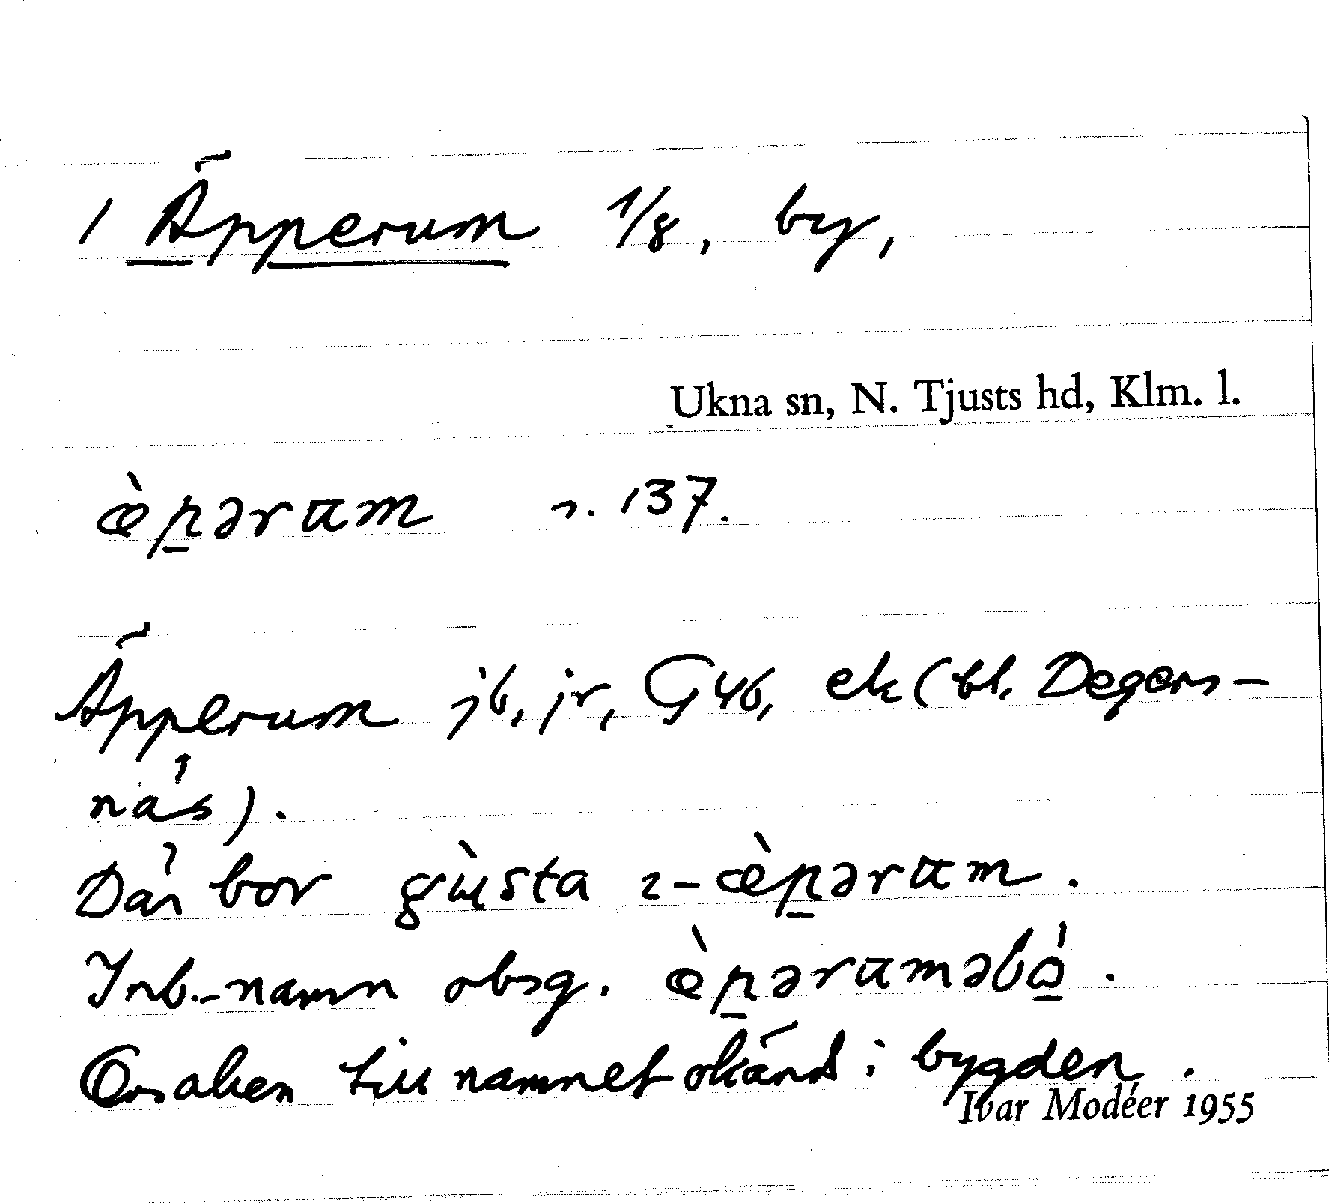 1 Äpperum 1/8, by,
Ukna sn, N. Tjusts hd, Klm. l.
æ̀p̠ərɷm n. 137.
Äpperum jb, jr, G46, ek (bl. Degers-
näs).
Där bor gùsta i-æ̀p̠ərɷm.
Inb.-namn obsg. æ̀p̠ərɷməbo̠.
Orsaken till namnet okänd i bygden.
Ivar Modéer 1955